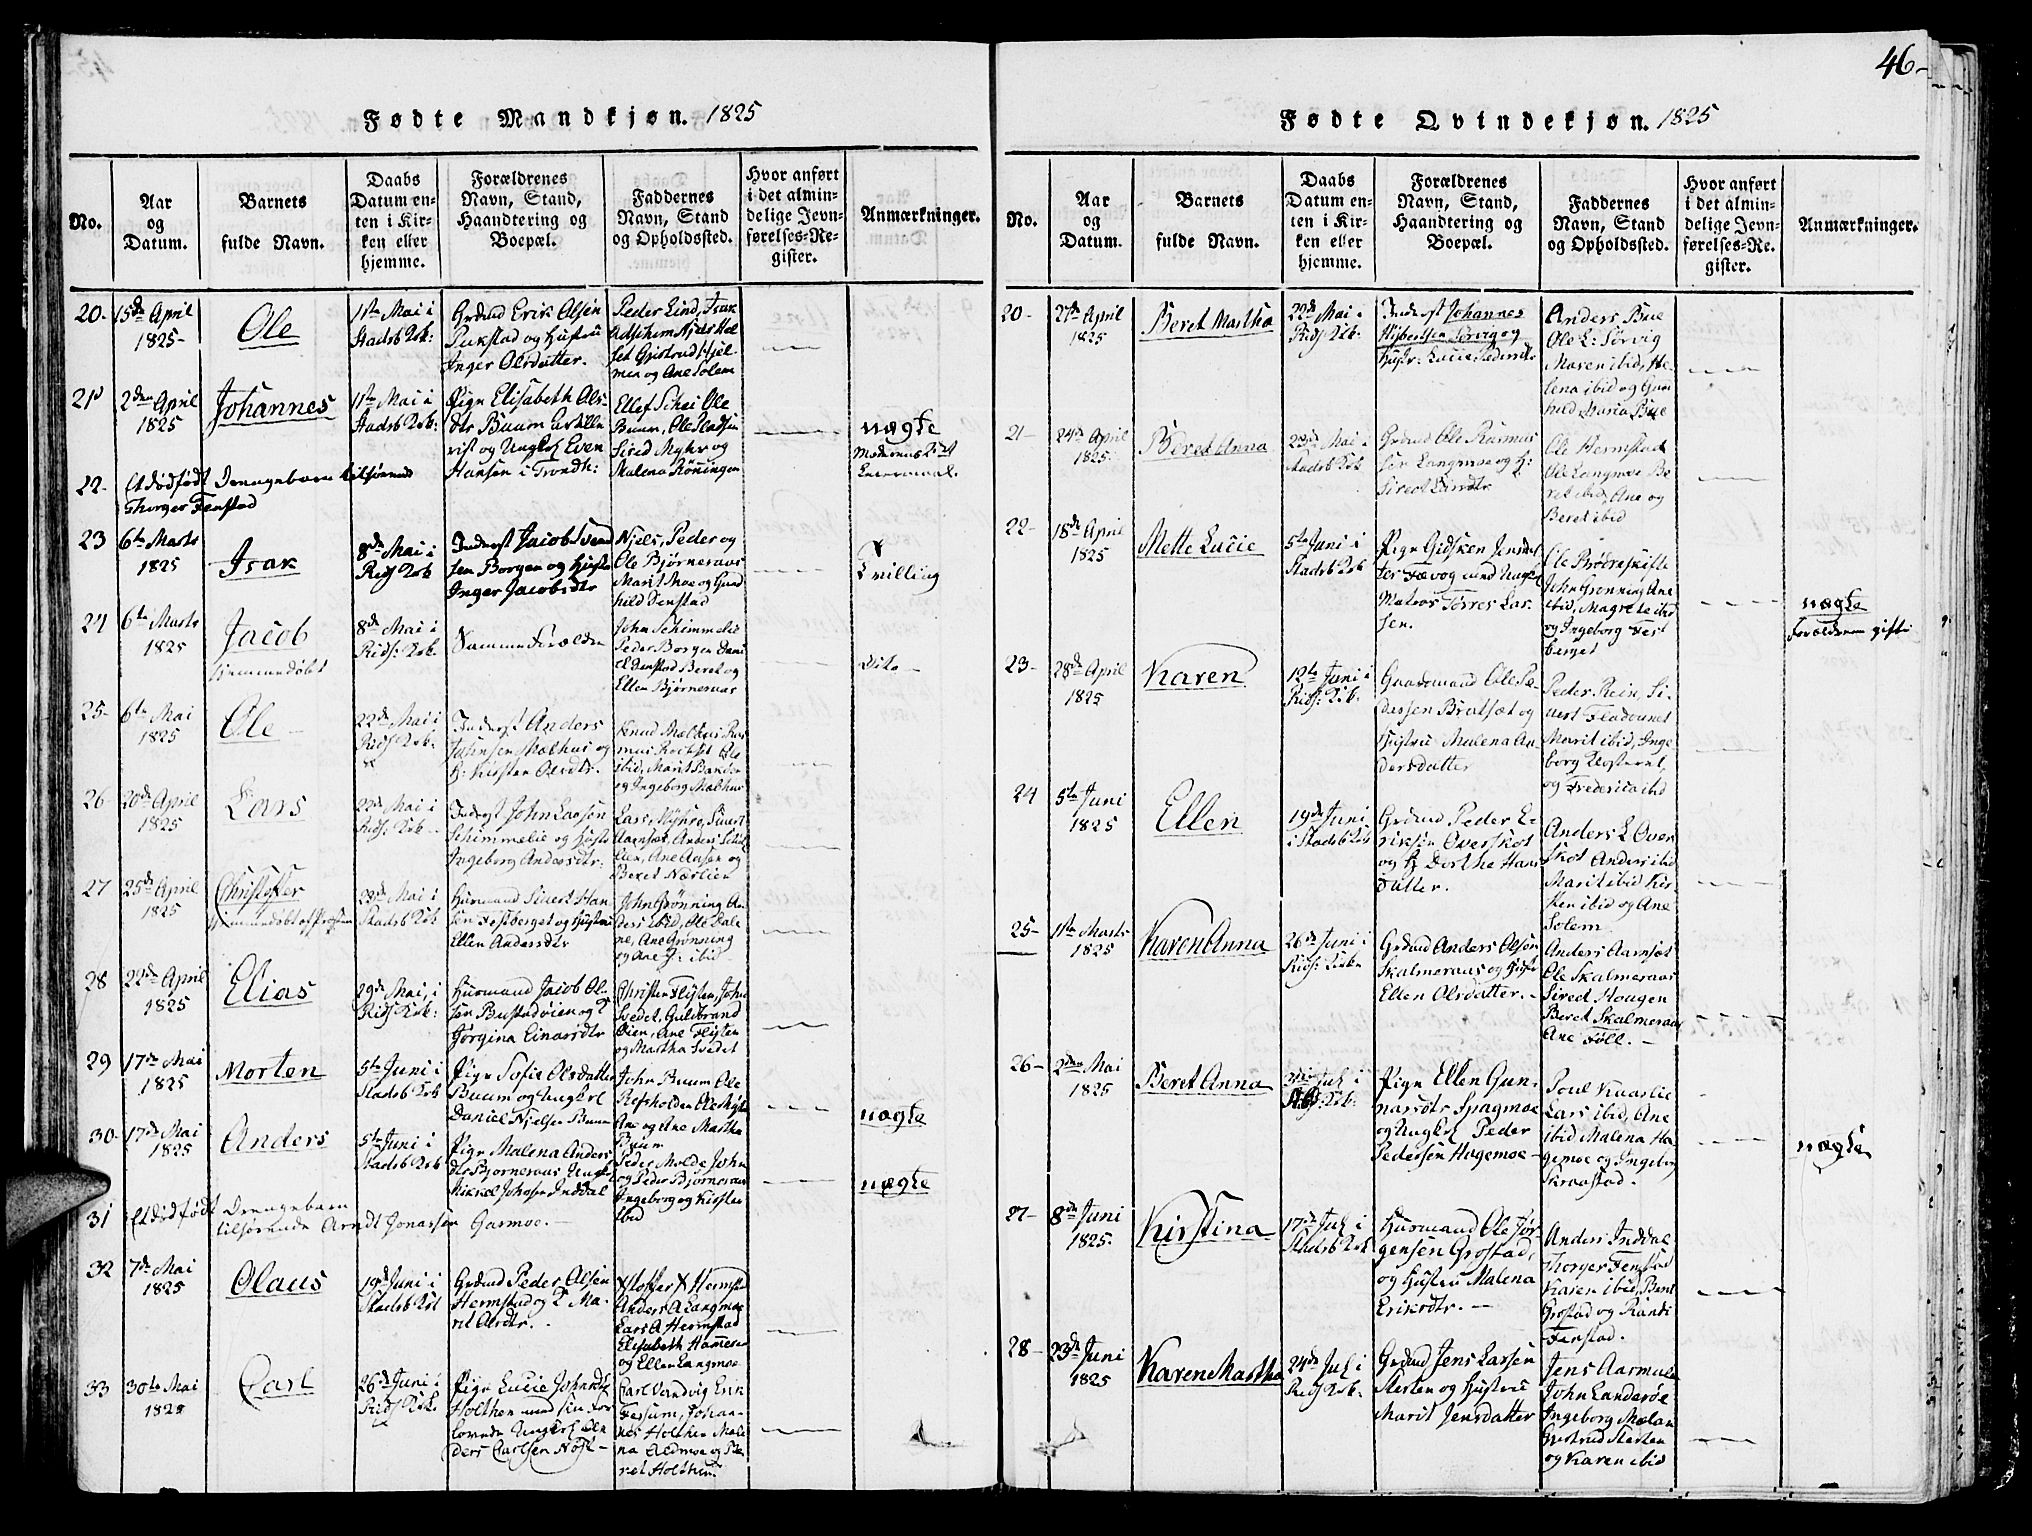 46-
Fødte Mandkjøn. 1825
No.
Aar
og
Datum.
Barnets
fulde Navn.
Daabs
Datum en-
ten i Kir-
ken eller
hjemme.
Forældrenes
Navn, Stand,
Haandtering og
Boepæl.
Faddernes
Navn, Stand
og Opholdssted.
Hvor anført
i det almin-
delige Jevn-
førelses-Re-
gister.
Anmærkninger.
20-
15de April
1825-
Ole
1ste Mai i
Stadsb Kirk:
Grdmd Erik Olsen
og Hustru
Inger Olsdatter.
Peder Lind, Isak
men og Ane Solem
21
2den April
1825
Johannes
11te Mai i
Stadsb Kirk:
Pige Elisabeth Ols-
dtr Buum
og Ungkl Even
Hansen i Trondh:
Ellef Ole
Buum, Ole
Sired Myhr og
Malena Rønningen
uægte
22-
Et dødfødt Drengebarn tilhørende
Thorger Fenstad
23
6te Marts
1825
Isak
8de Mai i
Rids Kirk
Inderst Jacob Svend
sen Borgen og Hustr
Inger Jacobsdtr
Niels, Peder og
Ole Bjørneraas
Marit Moe og Gun
hild Denstad
Tvilling
24
6te Marts
1825
Jacob
hjemmedøbt
8de Mai i
Rids: Kirk
Samme Forældre
John Schimmelie
Peder Borgen Dani
el Denstad Beret og
Ellen Bjørneraas
Dito-
25-
6te Mai
1825
Ole
22de Mai i
Rids Kirk
Inderst Anders
Johnsen Mælhus og
H: Kirsten Olsdtr.
Knud Mælhus Ras
mus Ole
ibid, Marit
og Ingeborg Mælhus
26
20de April
1825
Lars
22de Mai i
Rids: Kirk-
Inderst John Larsen
Schimmelie og Hustr
Ingeborg Andersdtr:
Lars Myhre, Siuert
Aarnset, Anders
Ane Aasen og
Beret Nærlien
27
25de April
1825
Christoffer
23de Mai i
Stadsb Kirk
Huusmand Siuert Han
sen Festberget og Hustru
Ellen Andersdtr
John Grønning An
ders ibid, Ole Dale
ne, Ane Grønning
og Ane J: ibid
28
22de April
1825
Elias
29de Mai i
Rids Kirk:
Huusmand Jacob Ol-
sen Bustadøien og H
Jørgina Einarsdtr
Christen Flyten, John
Svedet, Guldbrand
Øien, Ane Flyten
og Martha Svedet
29
17de Mai
1825
Morten
5te Juni i
Stadsb Kirk
Pige Sofie Olsdatter
Buum og Ungkrl
Daniel Nielsen Buum
John Buum Ole
Refsholden Ole
Ane og Ane Martha
Buum
uægte
30-
17de Mai
1825
Anders
5te Juni i
Stadsb Kirk
Pige Malena Anders
dtr Bjørneraas Ungkl
Mikkel Johnsen Inddal
Peder Molde John
og Peder Bjørneraas
Ingeborg og Kirsten
ibid
uægte
31
Et dødfødt Drengebarn
tilhørende Arndt Jonassen Garmoe.-
32
7de Mai
1825
Olaus
19de Juni i
Stadsb Kirk
Grdmd Peder Olsen
Hermstad og H Ma-
rit Olsdtr.-
Anders A Langmoe
Lars A Hermstad
Elisabeth
og Ellen Langmoe
33
30te Mai
1825
Carl
26de Juni i
Rids Kirk.
Pige Lucie Johnsdtr
Holthen med sin For
lovede Ungkrl An
ders Carlsen
Carl Vandvig Erik
Fessum, Johan-
nes Holthen Male
na og Be
ret Holthen
Fødte Qvindekjøn. 1825
No.
Aar
og
Datum.
Barnets
fulde Navn.
Daabs
Datum en-
ten i Kir-
ken eller
hjemme.
Forældrenes
Navn, Stand,
Haandtering og
Boepæl.
Faddernes
Navn, Stand
og Opholdssted.
Hvor anført
i det almin-
delige Jevn-
førelses-Re-
gister.
Anmærkninger.
20-
27de April
1825
Beret Martha
22de Mai i
Rids Kirk:
Inderst Johannes
Sørvig og
Hustr: Lucie
Anders Bue
Ole L: Sørvig
Maren ibid, He
lena ibid og Gun
hild Maria Bue
21-
24de April
1825-
Beret Anna
23de Mai i
Stadsb Kirk
Grdmd Ole Rasmus
sen Langmoe og H:
Sired
Ole Hermstad
Ole Langmoe Be
ret ibid, Ane og
Beret ibid
22-
18de April
1825
Mette Lucie
5te Juni i
Stadsb Kirk
Pige Gidsken Jensdat
ter Fævog med Ungkl
Matros Torres Lar-
sen.
Ole Brødreskift
John Grønning Ane
ibid, Magrete ibid
og Ingeborg Fest
berget
uægte
Forældrene gifte
23-
28de April
1825
Karen
12te Juni i
Rids: Kirk-
Gaardmand Ole Pe-
dersen Bratset og
Hustru Malena An-
dersdatter
Peder Rein, Si-
uert Fladaunet
Marit ibid, Inge
borg
og Frederica ibid
24
5te Juni
1825
Ellen
19de Juni
i Stadsb Kirk
Grdmd Peder E-
riksen Overskot
og H Dorthe Hans
datter.
Anders L Over
skot Anders ibid
Marit ibid Kir-
sten ibid og Ane
Solem
25-
11te Marts
1825
Karen Anna
26de Juni i
Rids: Kirk-
Grdmd Anders Olsen
Skalmeraas og Hustr
Ellen Olsdatter.-
Anders Aarnset
Ole Skalmeraas
Sired Haagen
Beret Skalmeraas
Ane Føll.-
26-
2den Mai
1825
Beret Anna
Juli i
Kirk:
Pige Ellen Gun-
narsdtr Spagmoe
og Ungkrl Peder
Pedersen Hagemoe-
Poul Kaarlie
Lars ibid, Ane
ibid Malena Ha-
gemoe og Ingeborg
Skraastad.
uægte
27-
8de Juni
1825.
Kirstina
17de Jul i
Stadsb Kirk
Huusmand Ole Jør-
gensen Grostad,
og Hustru Malena
Eriksdtr.-
Anders Inddal
Thorger Fenstad
Karen ibid, Beret
Grostad og Randi
Fenstad.
28-
23de Juni
1825
Karen Martha
24de Jul i
Rids Kirk:
Grdmd Jens Larsen
Sterten og Hustru
Marit Jensdatter
Jens Aarmule
John Landerøe
Ingeborg Mælan
Gertrud Sterten
og Karen ibid